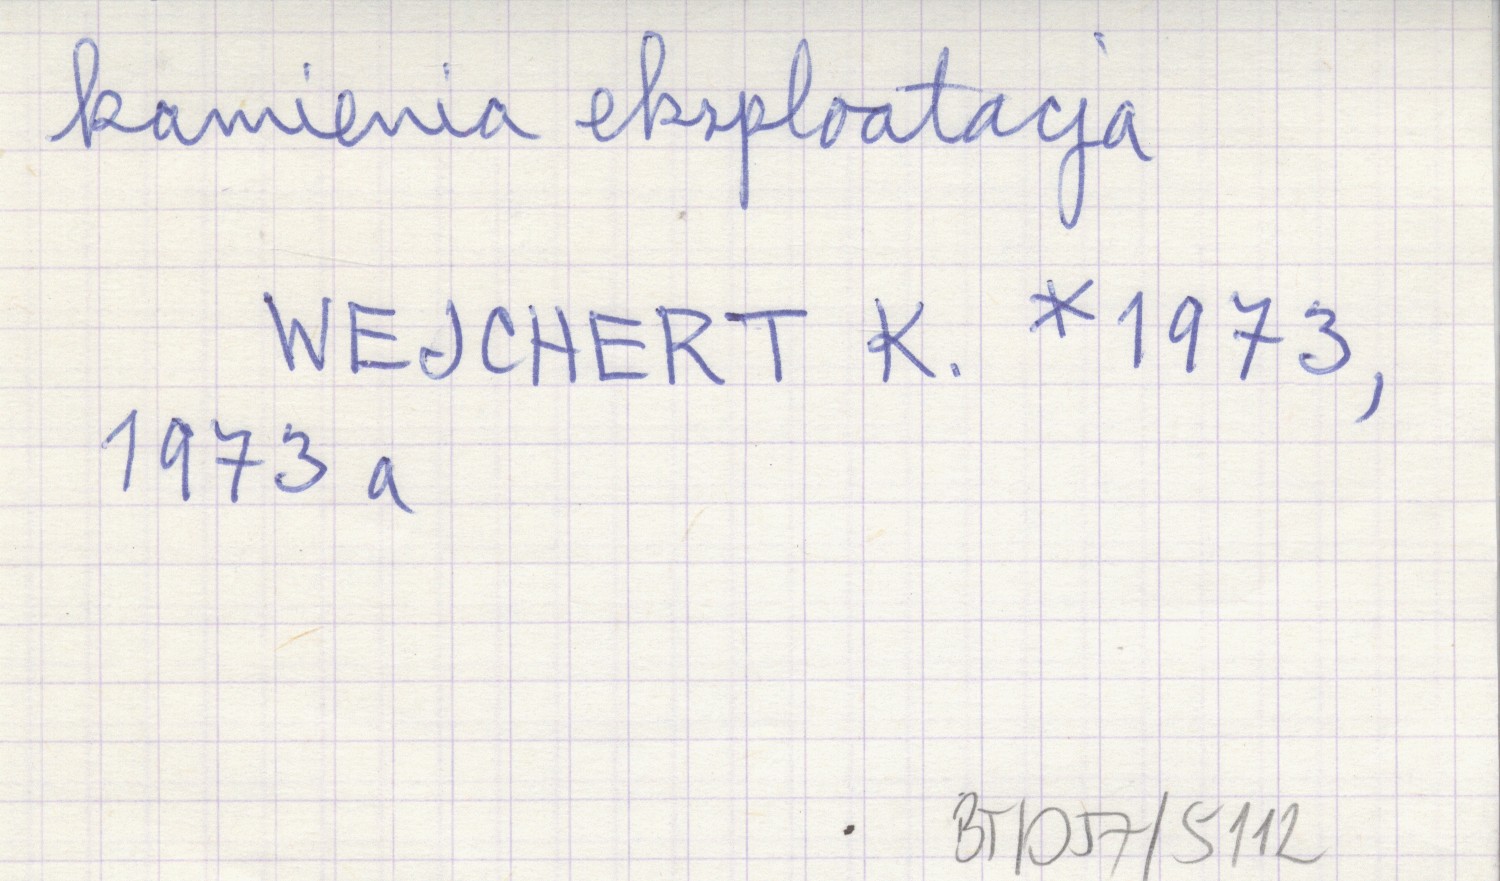 kamienia eksploatacja
WEJCHERT K. *1973,
1973 a
BT/057/S112